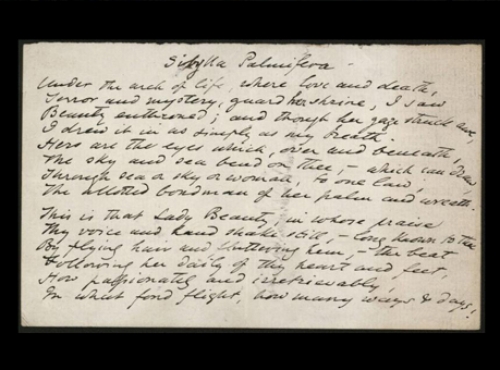 Sibylla Palmifera
Under the arch of life, where love and death,
Terror and mystery, guard her shrine, I saw
Beauty enthroned; and though her gaze struck awe,
I drew it in as simply as my breath.
Hers are the eyes which, over and beneath,
The sky and sea bend on thee, – which can draw
Through sea or sky or woman, to one law,
The allotted bondman of her palm and wreath.
This is that Lady Beauty, in whose praise
Thy voice and hand shake still, – long known to thee
By flying hair and fluttering hem, – the beat
Following her daily of thy heart and feet,
How passionately and irretrievably,
In what fond flight, how many ways & days!